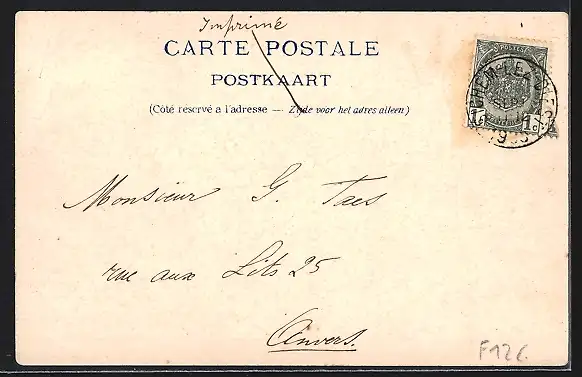 Imprimé
CARTE POSTALE
POSTKAART
(Côté réservé a l'adresse — Zijde voor het adres alleen)
POSTES
1c 1c
Monsieur G. Taes
rue aux Lits 25
Anvers.
F12C